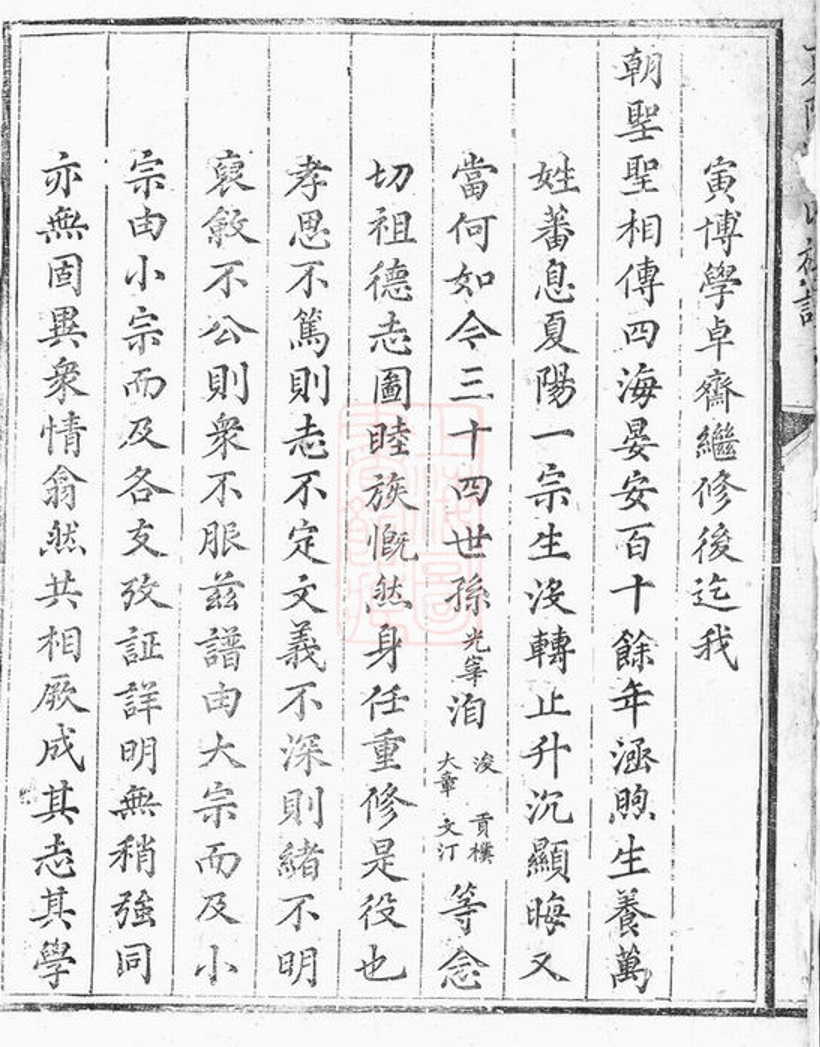 寅博學卓齋繼修後迄我
朝聖聖相傳四海晏安百十餘年涵煦生養萬
姓蕃息夏陽一宗生没轉止升沉顯晦又
當何如今三十四世孫光宰洎浚大章貢樸文汀等念
切祖德志圖睦族慨然身任重修是役也
孝思不篤則志不定文義不深則緒不明
裒斂不公則衆不服茲譜由大宗而及小
宗由小宗而及各支攷証詳明無稍強同
亦無固異衆情翕然共相厥成其志其學